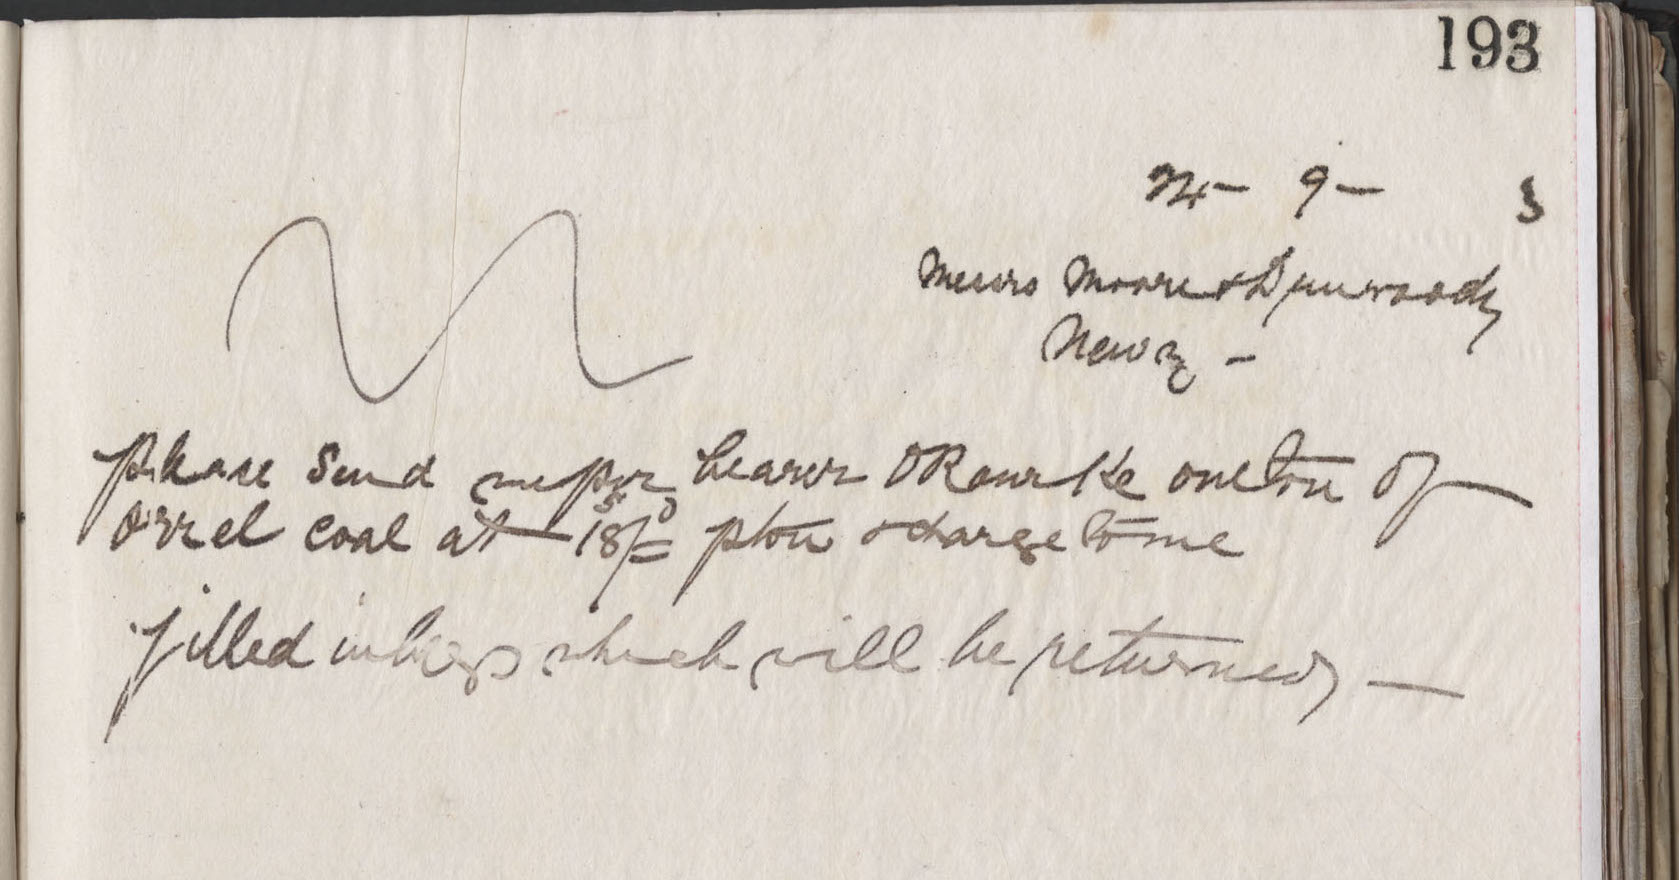 193
24 - 9 - 3
Messrs Moore & Dunwoody
Newry -
please send me per bearer O Rourke one ton of
Orrel coal at 18/= p ton & charge to me
filled in bags which will be returned —